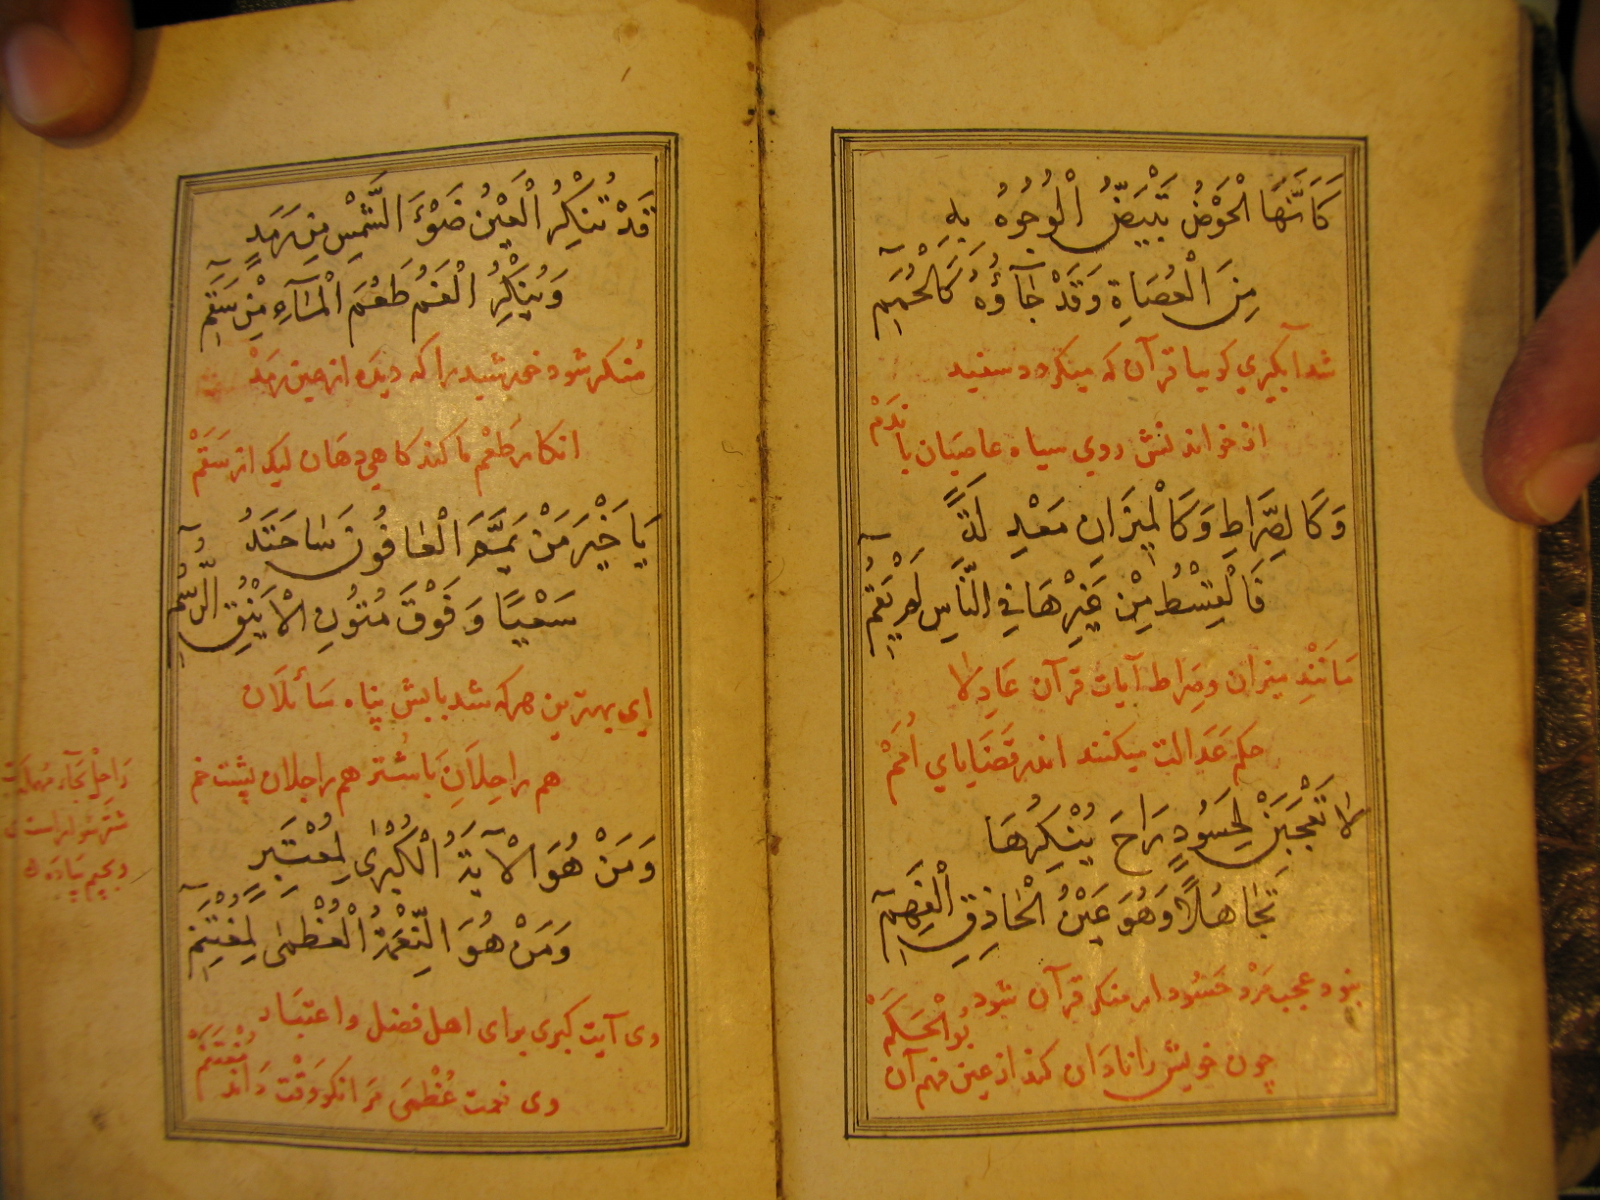 كَاَنَّهَا الْحَوْضُ تَبْيَضُّ الْوُجُوهُ بِهِ
مِنَ الْعُصَاةِ وَقَدْ جَآؤُهُ كَالْحُمَمِ
شد آبگیري کوییا قرآن که میگردد سفید
از خواندنش روي سیاه عاصیان با نَدَمْ
وَكَالصِّرَاطِ وَكَالْمِيزَانِ مَعْدِلَةً
فَالْقِسْطُ مِنْ غَيْرِهَا فِي النَّاسِ لَمْ يَقُمِ
مَانَنْدِ میزان وصِراط آیات قرآن عَادِلا
حکم عَدالت میکنند اندر قَضَایاي اُمَمْ
لَا تَعْجَبَنْ لِحَسُودٍ رَاحَ يُنْكِرُهَا
تَجَاهُلًا وَهُوَ عَيْنُ الْحَاذِقِ الْفَهِمِ
بنود عجب مَرْد حَسُود ار منکر قرآن شود
چون خویش را نادَان کند از عین فهم آن بُوالْحَكَمْ
قَدْ تُنْكِرُ الْعَيْنُ ضَوْءَ الشَّمْسِ مِنْ رَمَدٍ
وَيُنْكِرُ الْفَمُ طَعْمَ الْمَآءِ مِنْ سَقَمِ
مُنکر شود خورشید را که دیده از عین رَمَدْ
انکار طَعْم ما کند کاهي دهَان لیک از سَقَمْ
يَا خَيْرَ مَنْ يَمَّمَ الْعَافُونَ سَاحَتَهُ
سَعْيًا وَفَوْقَ مُتُونِ الْاَيْنُقِ الرُّسُمِ
اي بهترین هر که شد بابش پناه سَائلَان
هم راحِلَانِ بَا شتر هم راجلان پشت خم
وَمَنْ هُوَ الْآيَةُ الْكُبْرٰى لِمُعْتَبِرٍ
وَمَنْ هُوَ النِّعْمَةُ الْعُظْمٰى لِمُغْتَنِمِ
وی آیت کبری برای اهل فضل واعتبَار
وی نعمت عُظْمَی مَر انکو وَقْت دَاند مُغْتَنَمْ
رَاحِل بحآء مهملة
شتر سوار است
وبجیم پیاده